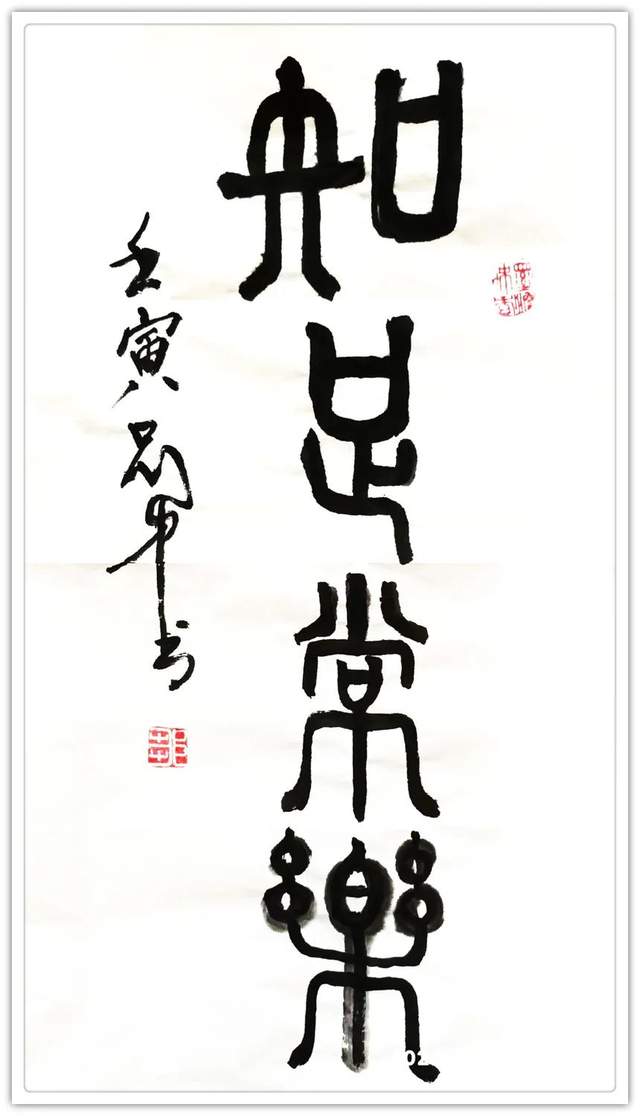 知足常樂
壬寅
书